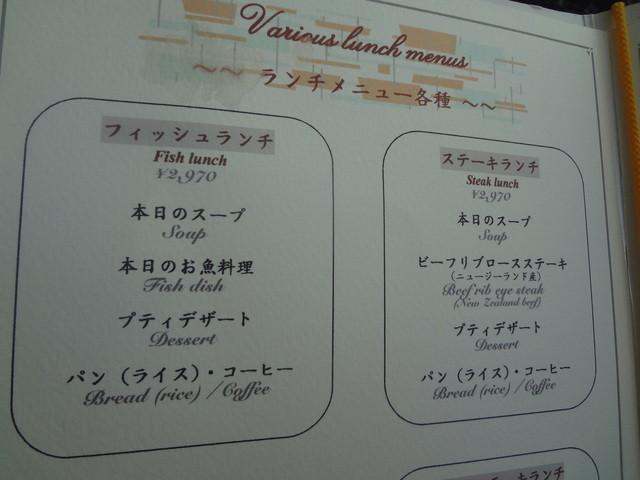 Various lunch menus
～～ ランチメニュー各種 ～～
フィッシュランチ
Fish lunch
¥2,970
本日のスープ
Soup
本日のお魚料理
Fish dish
プティデザート
Dessert
パン（ライス）・コーヒー
Bread (rice) / Coffee
ステーキランチ
Steak lunch
¥2,970
本日のスープ
Soup
ビーフリブロースステーキ
（ニュージーランド産）
Beef rib eye steak
(New Zealand beef)
プティデザート
Dessert
パン（ライス）・コーヒー
Bread (rice) / Coffee
キランチ